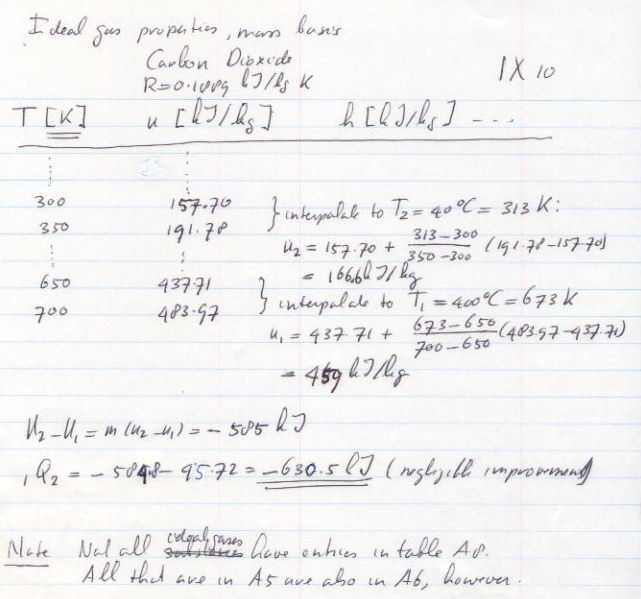 Ideal gas properties, mass basis
Carbon Dioxide
R=0.1889 kJ/kg K
1X 10
T [K] u [kJ/kg] h [kJ/kg] ...
300 157.70 } interpolate to T₂ = 40°C = 313 K:
350 191.78
u₂ = 157.70 + (313-300)/(350-300) (191.78-157.70)
= 166.6 kJ/kg
650 437.71 } interpolate to T₁ = 400°C = 673 K
700 483.97
u₁ = 437.71 + (673-650)/(700-650) (483.97-437.71)
= 459 kJ/kg
U₂-U₁ = m(u₂-u₁) = - 585 kJ
₁Q₂ = - 584.8 - 45.72 = -630.5 kJ (negligible improvement)
Note Not all ideal gases have entries in table A8.
All that are in A5 are also in A6, however.